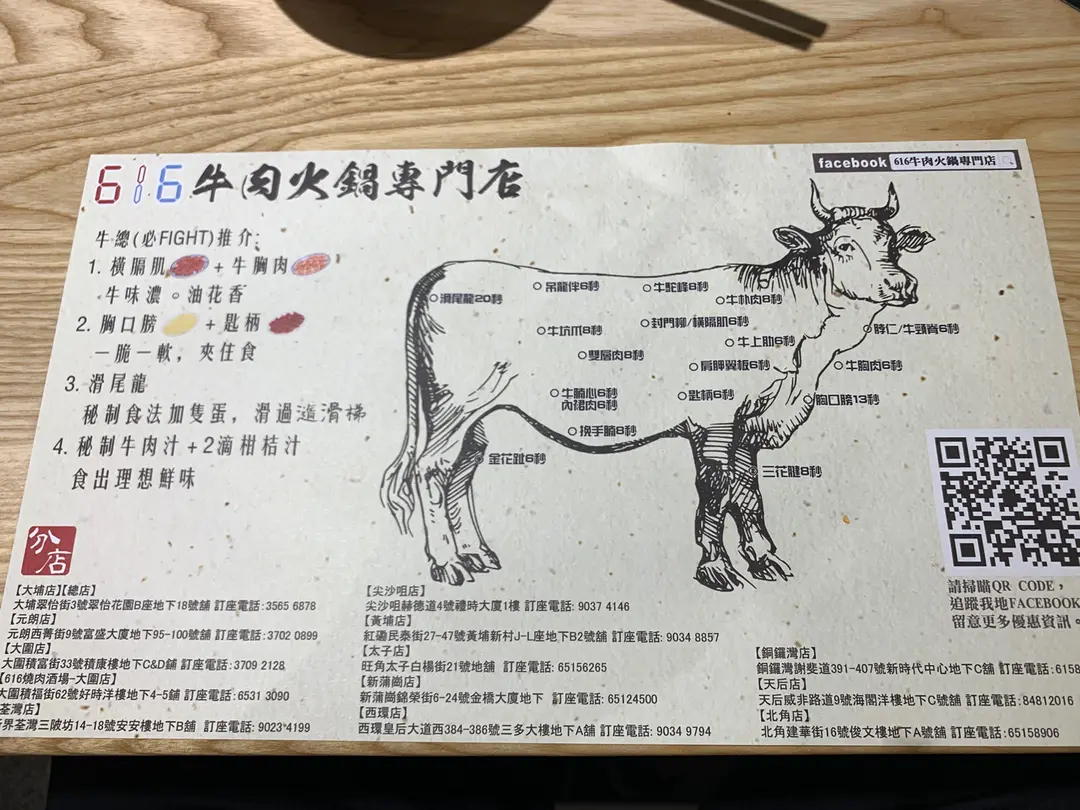 616牛肉火鍋專門店
facebook 616牛肉火鍋專門店
牛總(必FIGHT)推介:
1. 橫膈肌 + 牛胸肉
牛味濃。油花香
2. 胸口膀 + 匙柄
一脆一軟，夾住食
3. 滑尾龍
秘制食法加隻蛋，滑過滋滑梯
4. 秘制牛肉汁+2滴柑桔汁
食出理想鮮味
滑尾龍20秒
吊龍伴6秒
牛駝峰8秒
牛朴肉8秒
牛坑爪8秒
封門柳/橫隔肌6秒
脖仁/牛頸脊6秒
牛上肋6秒
雙層肉8秒
肩胛翼板6秒
牛胸肉6秒
牛腩心6秒
內裙肉6秒
匙柄6秒
胸口膀13秒
換手腩8秒
金花趾6秒
三花腱8秒
請掃瞄QR CODE，
追蹤我地FACEBOOK
留意更多優惠資訊。
分店
【大埔店】【總店】
大埔翠怡街3號翠怡花園B座地下18號舖 訂座電話:3565 6878
【元朗店】
元朗西菁街9號富盛大廈地下95-100號舖 訂座電話:3702 0899
【大圍店】
大圍積富街33號積康樓地下C&D鋪 訂座電話:3709 2128
【616燒肉酒場-大圍店】
大圍積福街62號好時洋樓地下4-5鋪 訂座電話:6531 3090
荃灣店】
界荃灣三陂坊14-18號安安樓地下B舖 訂座電話:9023 4199
【尖沙咀店】
尖沙咀赫德道4號禮時大廈1樓 訂座電話: 9037 4146
【黃埔店】
紅磡民泰街27-47號黃埔新村J-L座地下B2號舖 訂座電話: 9034 8857
【太子店】
旺角太子白楊街21號地舖 訂座電話: 65156265
【新蒲崗店】
新蒲崗錦榮街6-24號金橋大廈地下 訂座電話: 65124500
【西環店】
西環皇后大道西384-386號三多大樓地下A舖 訂座電話: 9034 9794
【銅鑼灣店】
銅鑼灣謝斐道391-407號新時代中心地下C舖 訂座電話:6158
【天后店】
天后威非路道9號海閣洋樓地下C號舖 訂座電話:84812016
【北角店】
北角建華街16號俊文樓地下A號舖 訂座電話:65158906